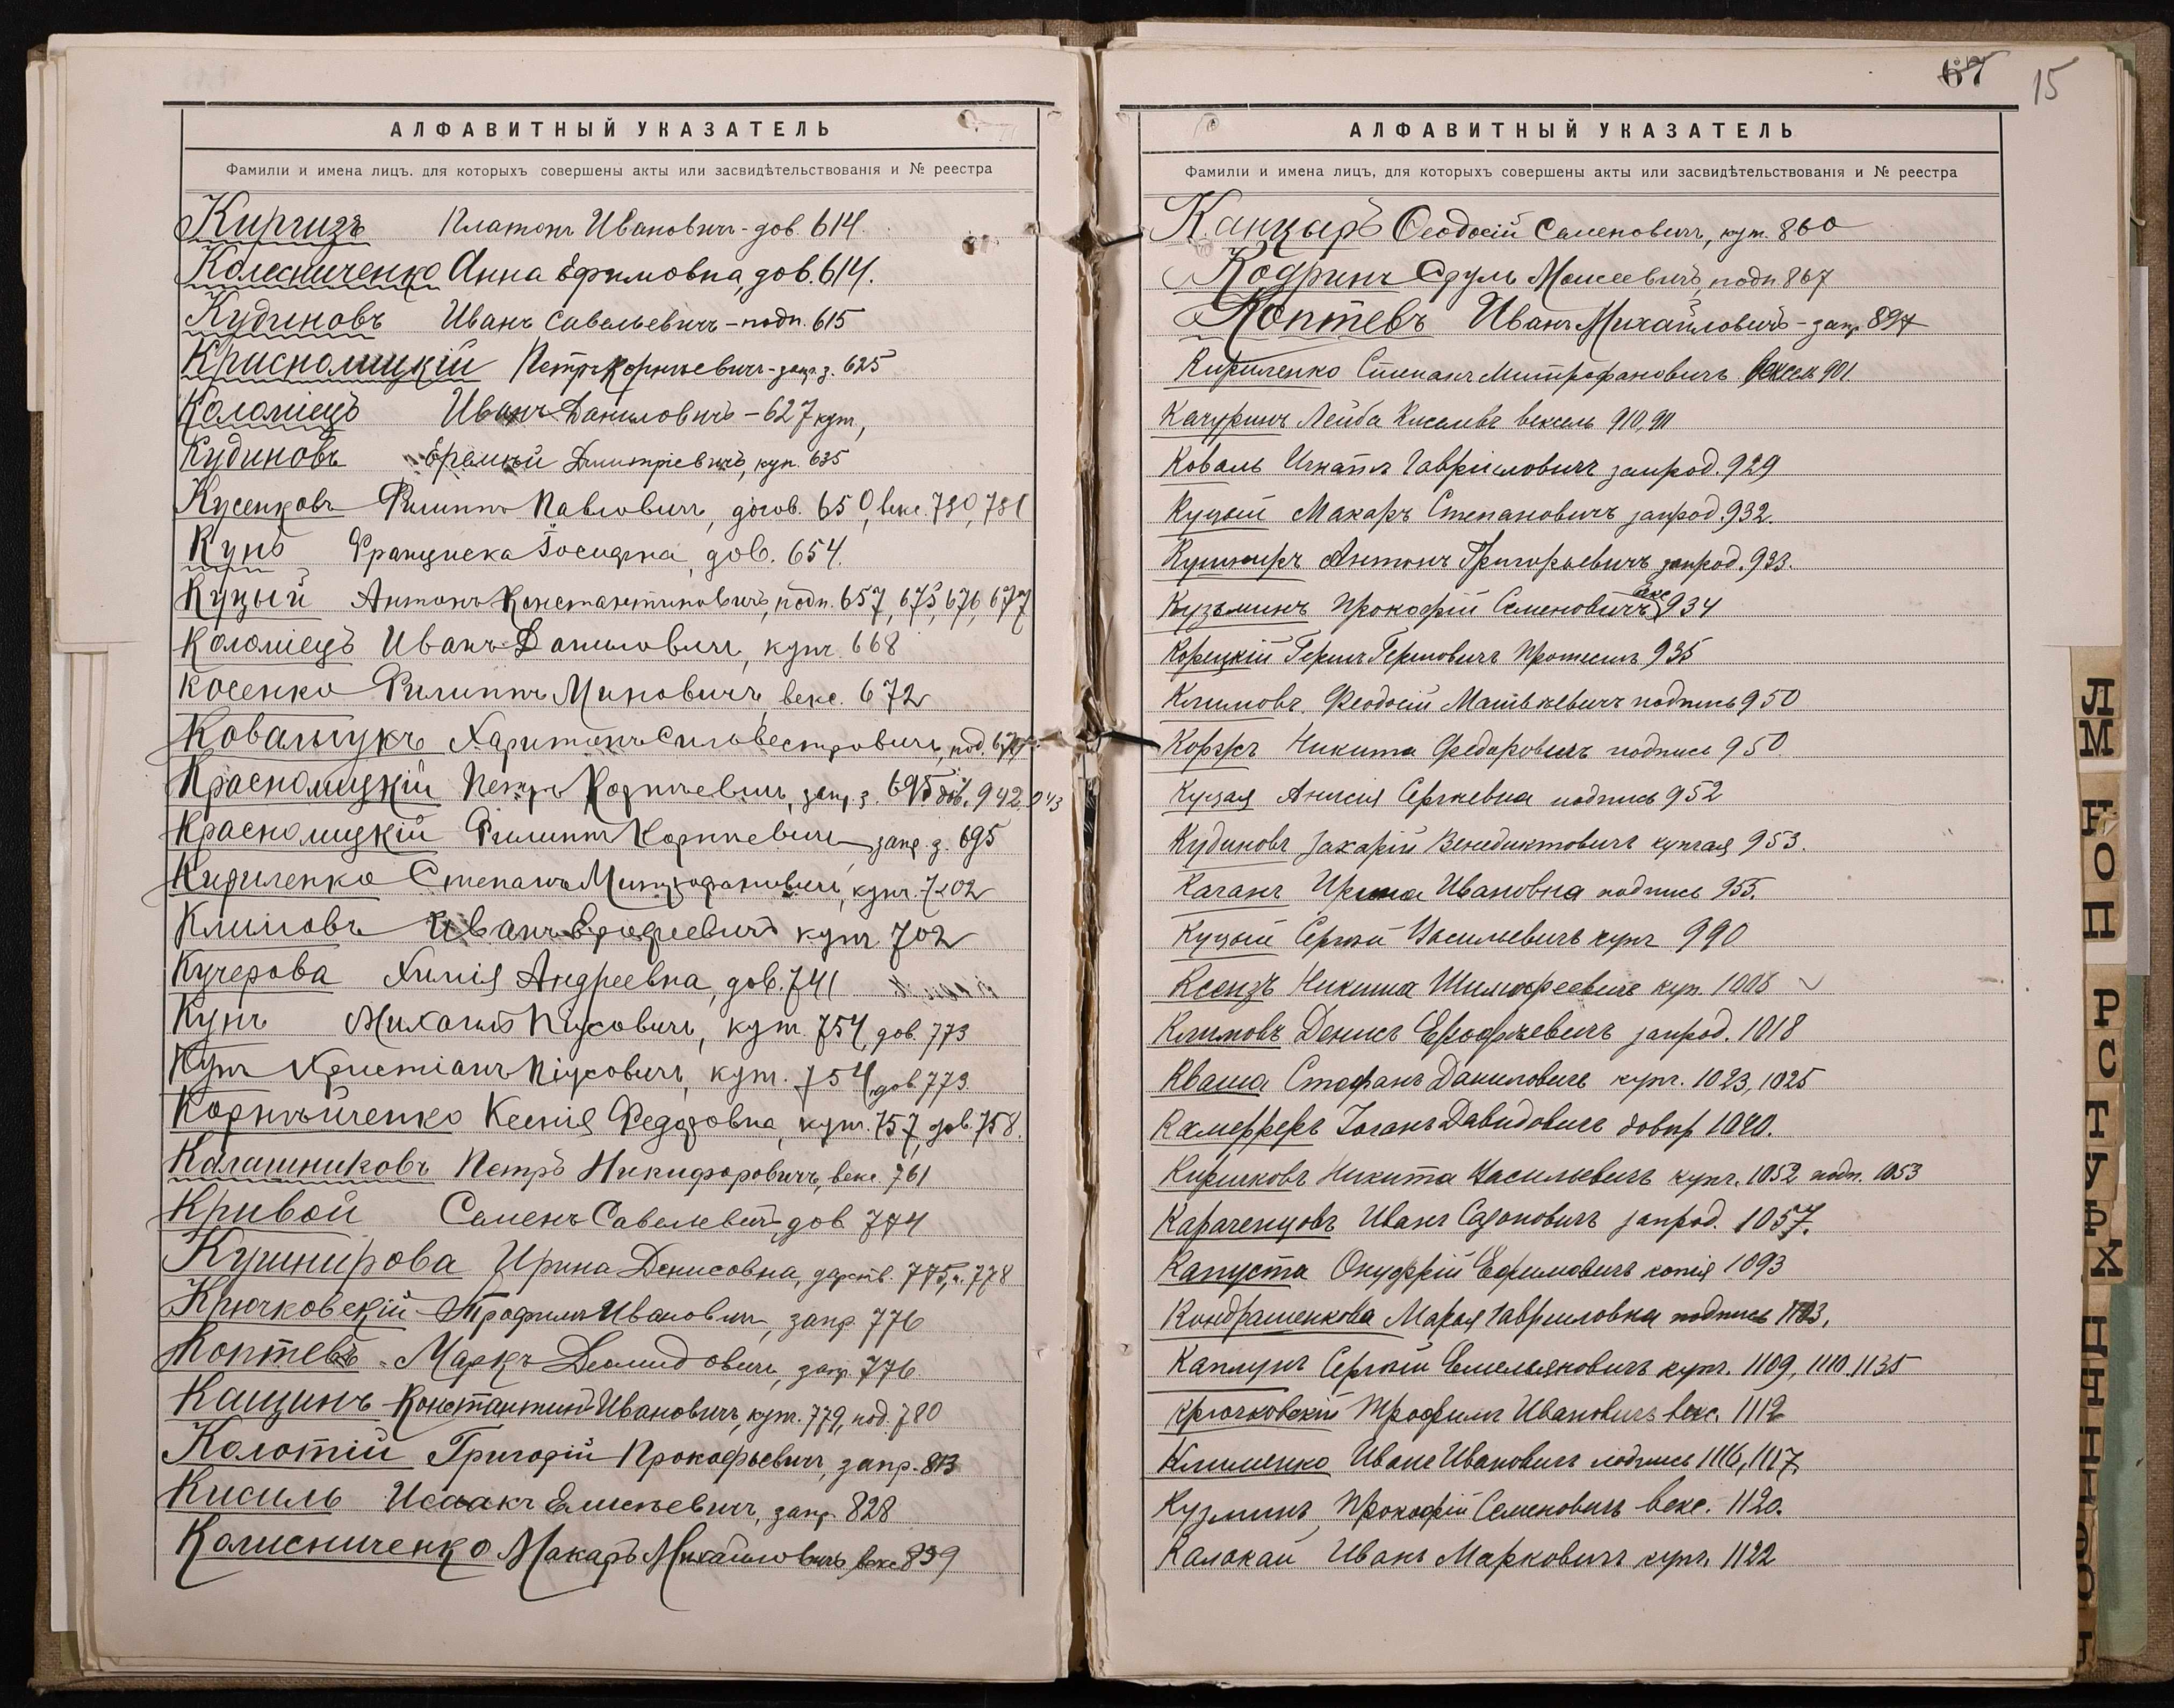 АЛФАВИТНЫЙ УКАЗАТЕЛЬ
Фамиліи и имена лицъ, для которыхъ совершены акты или засвидѣтельствованія и № реестра
Киргизъ Платонъ Ивановичъ - дов. 614.
Колесниченко Анна Ефимовна, дов. 614.
Кудиновъ Иванъ Савельевичъ - подп. 615
Красномицкій Петръ Корнѣевичъ - запр. з. 625
Коломіецъ Иванъ Даниловичъ - 627 куп,
Кудиновъ Еремѣй Дмитріевичъ, куп. 635
Кусенковъ Филиппъ Павловичъ, догов. 650, векс. 780, 781
Кунъ Франциска Іосифна, дов. 654.
Куцый Антонъ Константиновичъ, подп. 657, 675, 676, 677
Коломіецъ Иванъ Даниловичъ, купч. 668
Косенко Филиппъ Миновичъ, векс. 672
Ковальчукъ Харитонъ Сильвестровичъ, под. 677
Красномицкій Петръ Корнѣевичъ, запр. з. 695 дов. 942, 943
Красномицкій Филиппъ Корнѣевичъ запр. з. 695
Кириленко Степанъ Митрофановичъ, купч. 702
Климовъ Иванъ Ерофѣевичъ купч. 702
Кучерова Химія Андреевна, дов. 741
Кунъ Михаилъ Піусовичъ, купч. 754, дов. 773
Кунъ Христіанъ Піусовичъ, купч. 754, дов. 773.
Корнѣйченко Ксенія Федоровна, купч. 757, дов. 758.
Калашниковъ Петръ Никифоровичъ, векс. 761
Кривой Семенъ Савельевичъ дов. 774
Кушнирова Ирина Денисовна, дарств. 775, 778
Крючковскій Трофимъ Ивановичъ, запр. 776
Коптевъ Маркъ Деомидовичъ, запр. 776
Кащинъ Константинъ Ивановичъ, купч. 779, под. 780
Колотій Григорій Прокофьевичъ, запр. 813
Кисиль Исаакъ Елисѣевичъ, запр. 828
Колисниченко Макаръ Михайловичъ векс. 839
67 15
АЛФАВИТНЫЙ УКАЗАТЕЛЬ
Фамиліи и имена лицъ, для которыхъ совершены акты или засвидѣтельствованія и № реестра
Канцыръ Ѳеодосій Семеновичъ, куп. 860
Кодринъ Сруль Моисеевичъ, подп. 867
Коптевъ Иванъ Михайловичъ - запр. 897
Кириленко Степанъ Митрофановичъ вексель 901.
Качуринъ Лейба Киселевъ вексель 910, 911
Коваль Игнатъ Гавриловичъ запрод. 929
Куцый Макаръ Степановичъ запрод. 932.
Кушниръ Антонъ Григорьевичъ запрод. 933.
Кузьминъ Прокофій Семеновичъ векс 934
Корецкій Герцъ Герцовичъ протестъ 935
Климовъ Феодосій Матвѣевичъ подпись 950
Коржъ Никита Федоровичъ подпись 950.
Куцая Анисія Сергѣевна подпись 952
Кудиновъ Захарій Венедиктовичъ купчая 953.
Качанъ Ирина Ивановна подпись 955.
Куцый Сергѣй Васильевичъ купч 990
Ксензъ Никита Тимофеевичъ куп. 1008
Климовъ Денисъ Ерофѣевичъ запрод. 1018
Кваша Стефанъ Даниловичъ купч. 1023, 1025
Камерферъ Іоганъ Давидовичъ довѣр 1040.
Киричковъ Никита Васильевичъ купч. 1052 подп. 1053
Караченцовъ Иванъ Сазоновичъ запрод. 1057.
Капуста Онуфрій Ефимовичъ копія 1093
Кондрашенкова Марья Гавриловна подпись 1103.
Каплунъ Сергѣй Емельяновичъ купч. 1109, 1110, 1135
Крючковскій Трофимъ Ивановичъ векс. 1112
Клименко Иванъ Ивановичъ подпись 1116, 1117
Кузминъ Прокофій Семеновичъ векс. 1120.
Калакай Иванъ Марковичъ купч. 1122
Л
М
Н
О
П
Р
С
Т
У
Ф
Х
Ц